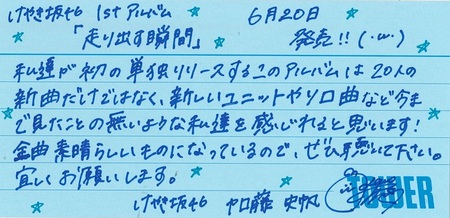 けやき坂46 1stアルバム 6月20日
「走り出す瞬間」 発売!! (・ω・)
私達が初の単独リリースするこのアルバムは20人の
新曲だけではなく、新しいユニットやソロ曲など今ま
で見たことの無いような私達を感じれると思います!
全曲素晴らしいものになっているので、ぜひ聴いて下さい。
宜しくお願いします。
けやき坂46 加藤 史帆
TOWER